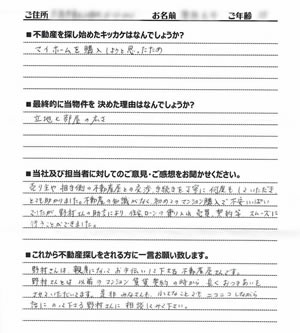 ご住所 お名前 ご年齢
■不動産を探し始めたキッカケはなんでしょうか？
マイホームを購入しようと思ったため
■最終的に当物件を 決めた理由はなんでしょうか？
立地と部屋の広さ
■当社及び担当者に対してのご意見・ご感想をお聞かせください。
売り主や相手側の不動産屋との交渉、手続きを丁寧に何度もしていただき
とても助かりました。不動産の知識がなく、初めてのマンション購入で不安いっぱい
でしたが、野村さんの助言により住宅ローンの借り入れ、売買契約等 スムーズに
行うことができました。
■これから不動産探しをされる方に一言お願い致します。
野村さんは、親身になってお手伝いして下さる不動産屋さんです。
野村さんとは以前のマンション賃貸契約の時から長くおつきあいを
させていただいてます。是非みなさんも、ささいなことでもニコニコしながら
話にのって下さる野村さんに相談してみて下さい。